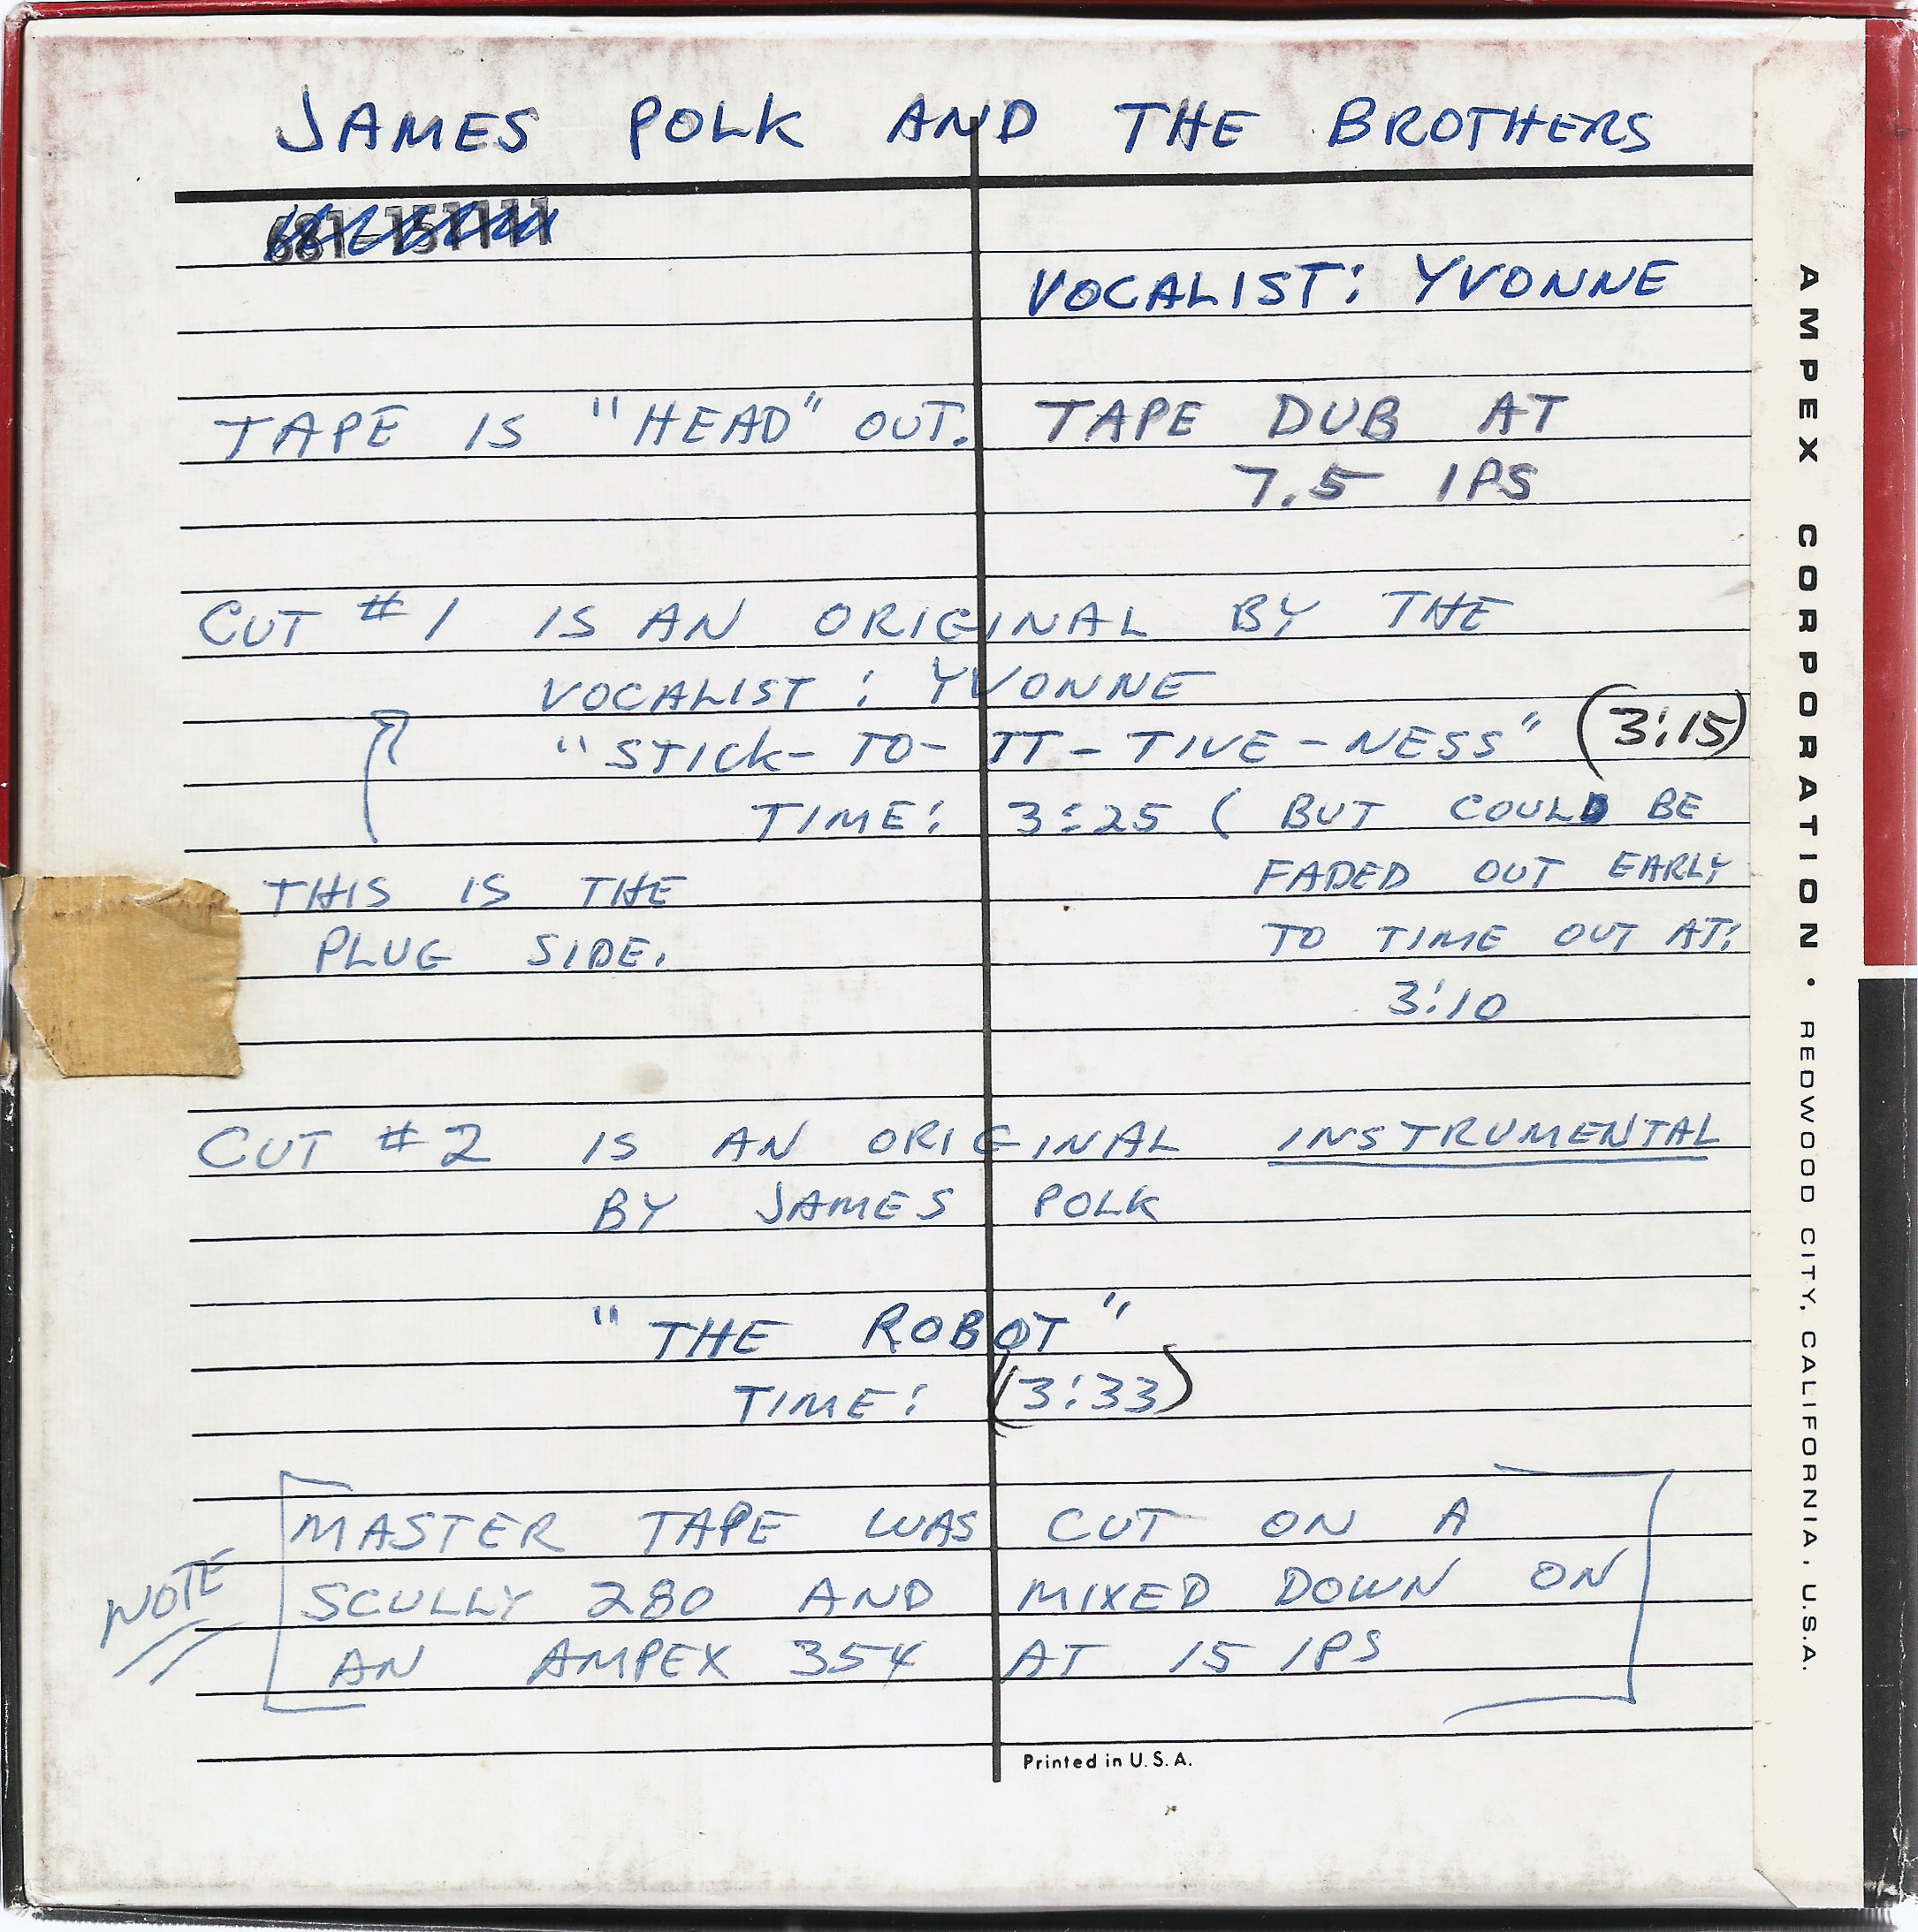 JAMES POLK AND THE BROTHERS
681-151111
VOCALIST: YVONNE
TAPE IS "HEAD" OUT. TAPE DUB AT
7.5 IPS
CUT #1 IS AN ORIGINAL BY THE
VOCALIST: YVONNE
"STICK-TO-IT-TIVE-NESS" (3:15)
TIME: 3:25 (BUT COULD BE
FADED OUT EARLY
TO TIME OUT AT:
3:10
THIS IS THE
PLUG SIDE.
CUT #2 IS AN ORIGINAL INSTRUMENTAL
BY JAMES POLK
"THE ROBOT"
TIME: (3:33)
NOTE
MASTER TAPE WAS CUT ON A
SCULLY 280 AND MIXED DOWN ON
AN AMPEX 354 AT 15 IPS
Printed in U.S.A.
AMPEX CORPORATION • REDWOOD CITY, CALIFORNIA, U.S.A.